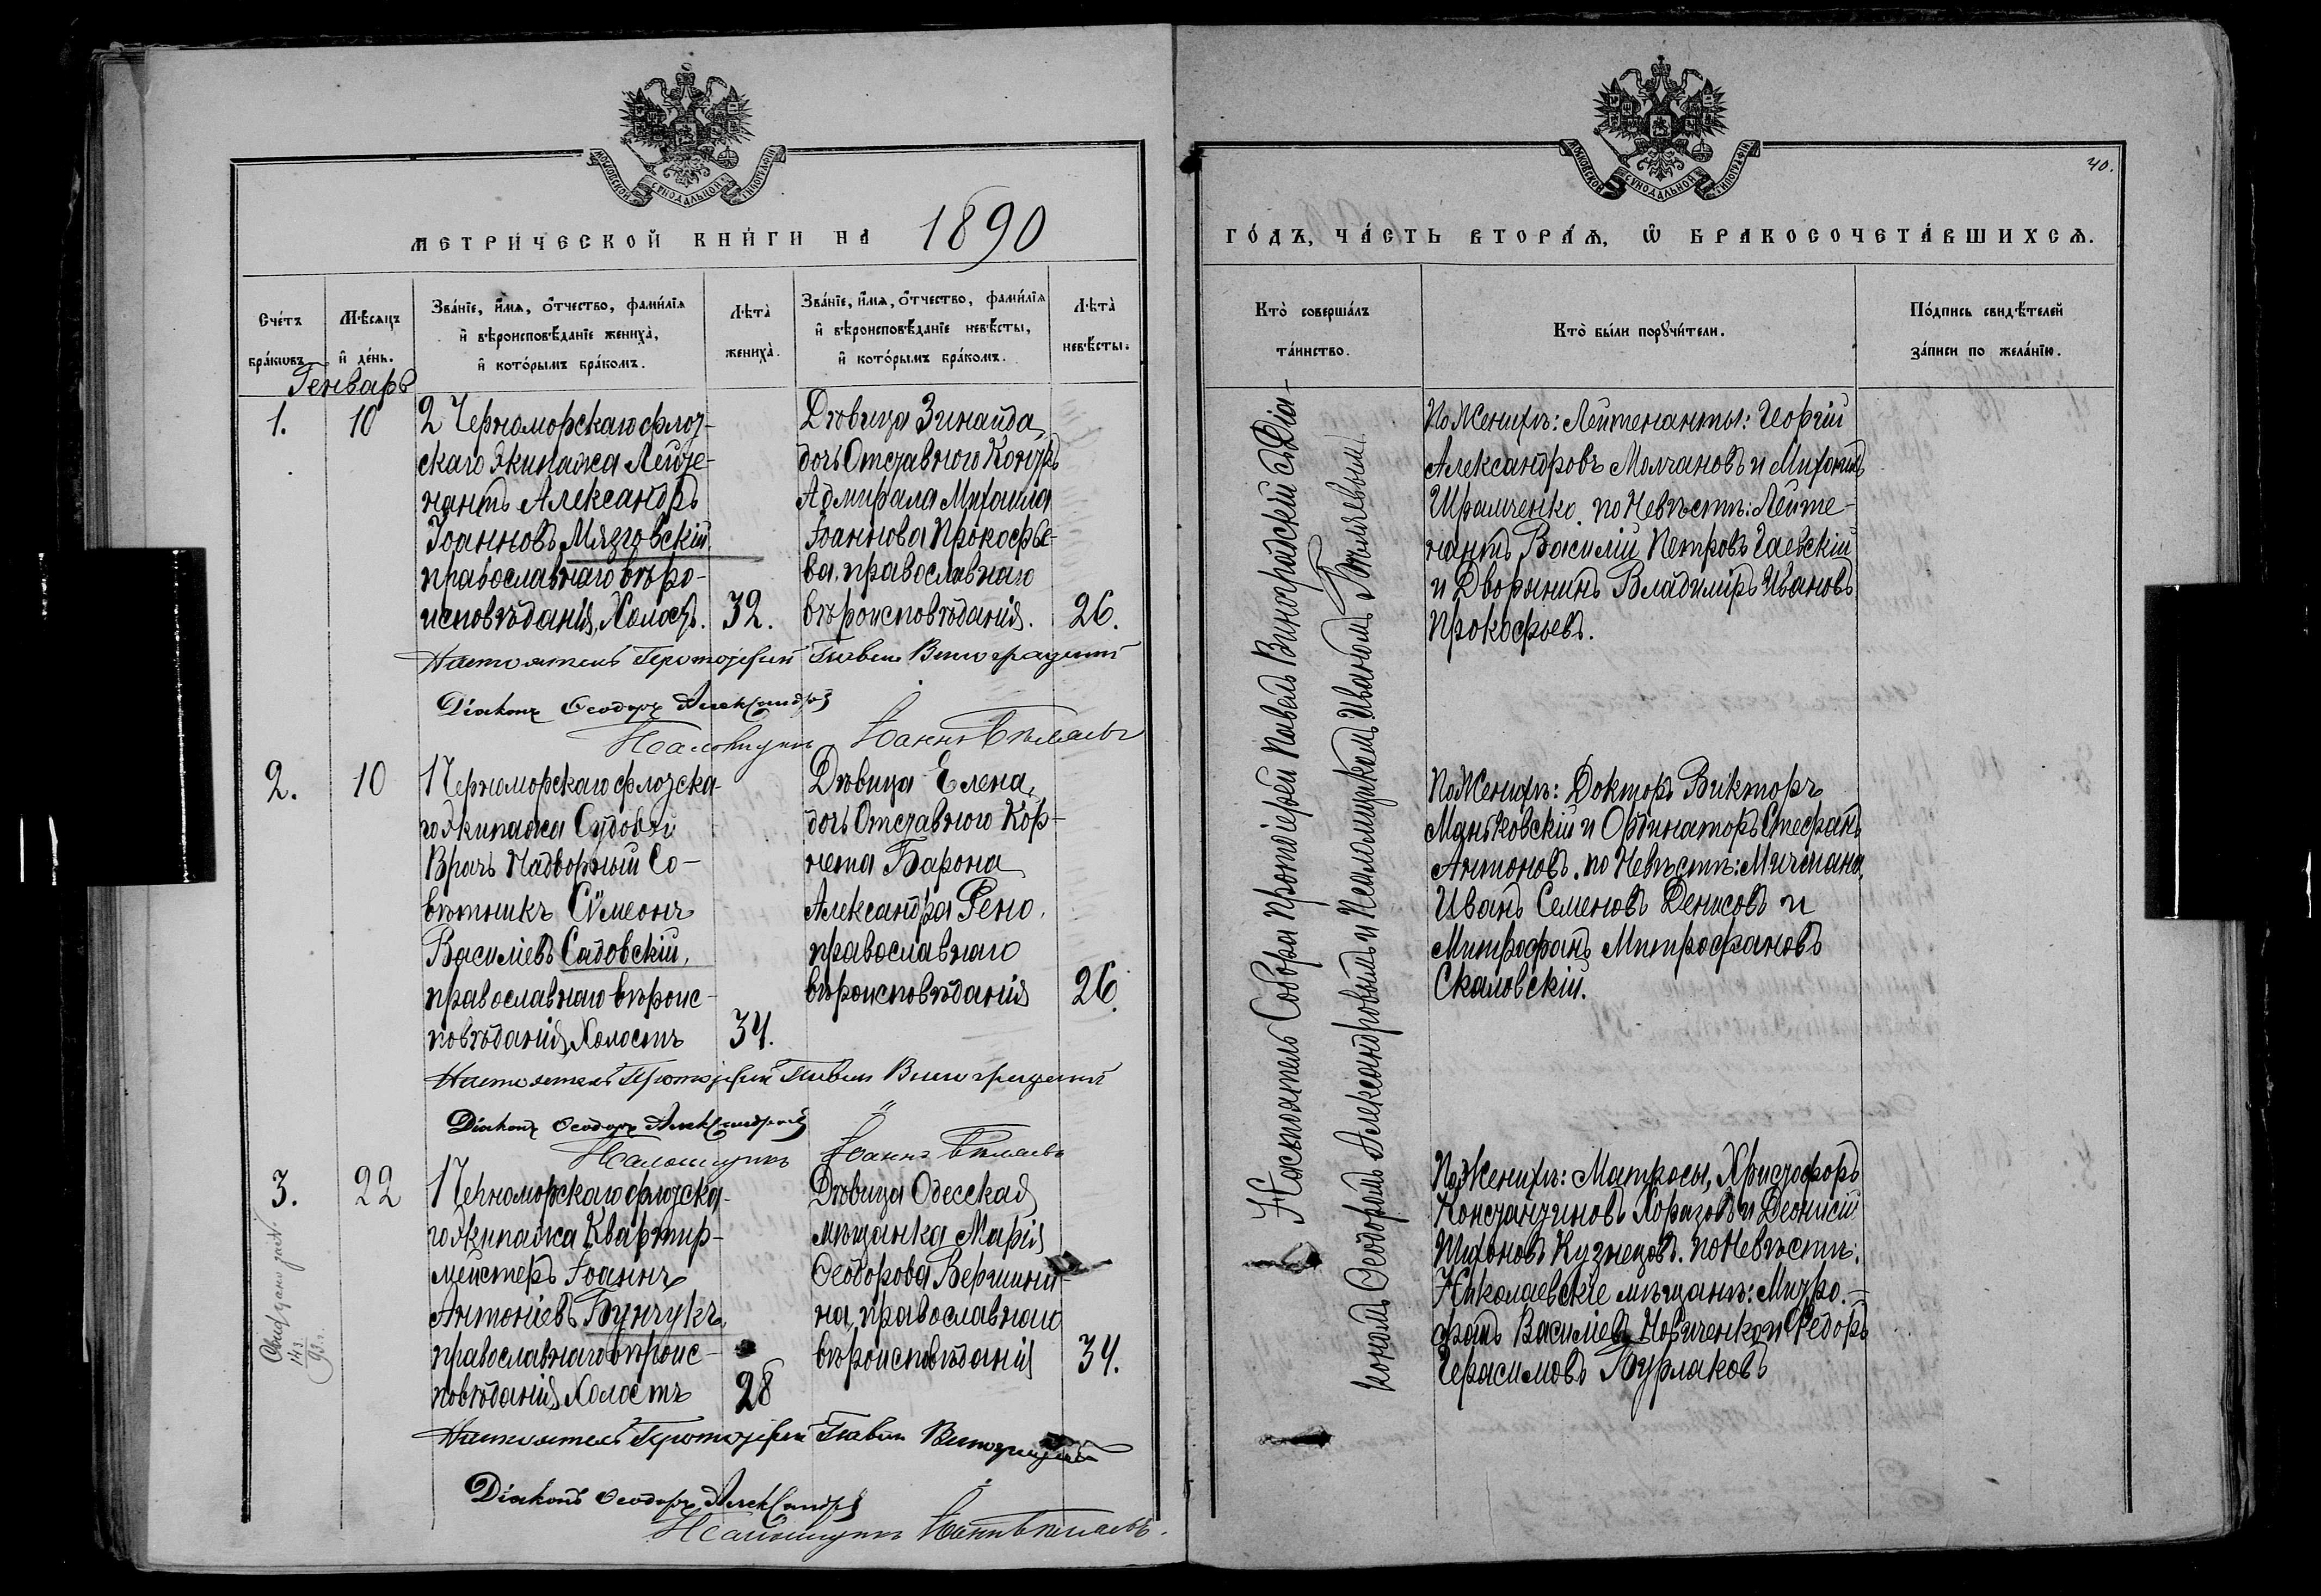 МОСКОВСКОЙ СѴНОДАЛЬНОЙ ТИПОГРАФІИ
МЕТРИ́ЧЕСКОЙ КНИ́ГИ НА 1890
Сче́тъ бра́ковъ.
Мѣ́сяцъ и де́нь.
Зва́ніе, и́мя, о́тчество, фами́лія
и вѣроисповѣ́даніе жениха̀,
и кото́рымъ бра́комъ.
Лѣта̀
жениха̀.
Зва́ніе, и́мя, о́тчество, фами́лія
и вѣроисповѣ́даніе невѣ́сты,
и кото́рымъ бра́комъ.
Лѣта̀
невѣ́сты.
Генварь
1.
10
2 Черноморскаго флот-
скаго Экипажа Лейте-
нантъ Александръ
Іоанновъ Мязговскій
православнаго вѣро-
исповѣданія, Холостъ.
32.
Дѣвица Зинаида,
дочь Отставного Контръ
Адмирала Михаила
Іоаннова Прокофье-
ва, православнаго
вѣроисповѣданія.
26.
Настоятель Протоіерей Павелъ Виноградскій
Діаконъ Ѳеодоръ Александровъ
Псаломщикъ Іоаннъ Бѣляевъ
2.
10
1 Черноморскаго флотска-
го Экипажа Судовой
Врачъ Надворный Со-
вѣтникъ Сѷмеонъ
Василіевъ Садовскій,
православнаго вѣроис-
повѣданія, Холостъ
34.
Дѣвица Елена,
дочь Отставного Кор-
нета Барона
Александра Рено,
православнаго
вѣроисповѣданія
26.
Настоятель Протоіерей Павелъ Виноградскій
Діаконъ Ѳеодоръ Александровъ
Псаломщикъ Іоаннъ Бѣляевъ
3.
22
1 Черноморскаго флотска-
го Экипажа Квартир-
мейстеръ Іоаннъ
Антоніевъ Бунчукъ,
православнаго вѣроис-
повѣданія, Холостъ
28
Дѣвица Одесская
мѣщанка Марія
Ѳеодорова Вершини-
на, православнаго
вѣроисповѣданія
34.
Настоятель Протоіерей Павелъ Виноградскій
Діаконъ Ѳеодоръ Александровъ
Псаломщикъ Іоаннъ Бѣляевъ.
МОСКОВСКОЙ СѴНОДАЛЬНОЙ ТИПОГРАФІИ
40.
ГО́ДЪ, ЧА́СТЬ ВТОРА́Я, Ѡ БРАКОСОЧЕТА́ВШИХСЯ.
Кто̀ соверша́лъ
та́инство.
Кто̀ бы́ли поручи́тели.
По́дпись свидѣ́телей
за́писи по жела́нію.
Настоятель Собора Протоіерей Павелъ Виноградскій съ Діа-
кономъ Ѳеодоромъ Александровымъ и Псаломщикомъ Иваномъ Бѣляевымъ.
По Женихѣ: Лейтенанты: Георгій
Александровъ Молчановъ и Михаилъ
Шрамченко, по Невѣстѣ: Лейте-
нантъ Василій Петровъ Гаевскій
и Дворянинъ Владиміръ Ивановъ
Прокофьевъ.
По Женихѣ: Докторъ Викторъ
Маньковскій и Ординаторъ Стефанъ
Антоновъ. по Невѣстѣ: Мичмана,
Иванъ Семеновъ Денисовъ и
Митрофанъ Митрофановъ
Скаловскій.
По Женихѣ: Матросы, Христофоръ
Константиновъ Хоразовъ и Деонисій
Тихоновъ Кузнецовъ. по Невѣстѣ:
Николаевскіе мѣщане: Митро-
фанъ Василіевъ Новиченко и Ѳедоръ
Герасимовъ Бурлаковъ